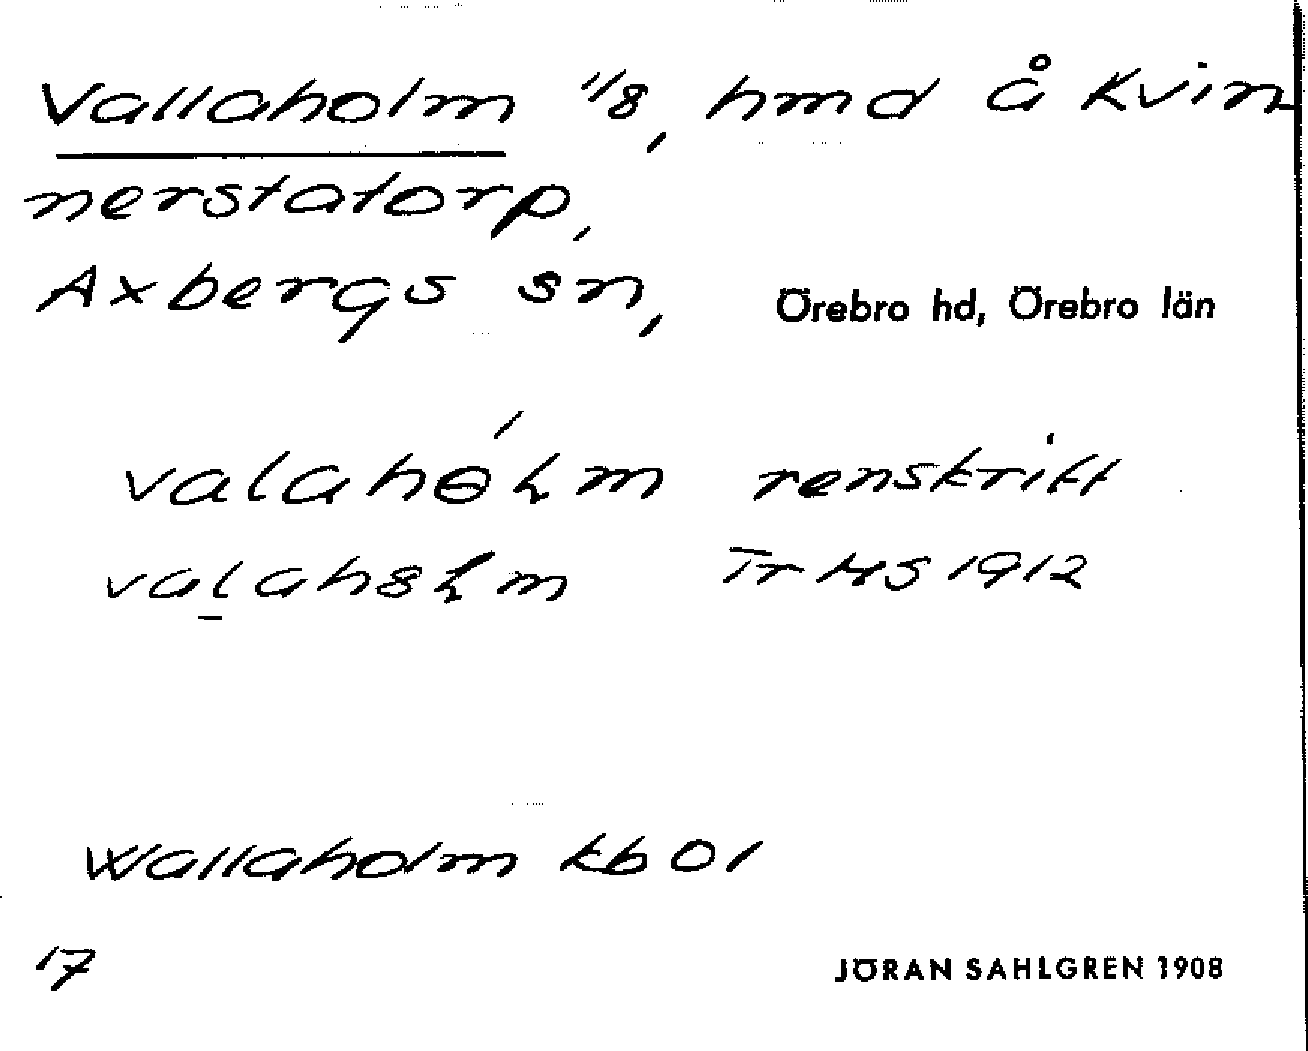 Vallaholm 1/8, hmd å Kvin
nerstatorp,
Axbergs sn, Örebro hd, Örebro län
renskrift
Tr HS 1912
Wallaholm kb 01
17 JÖRAN SAHLGREN 1908